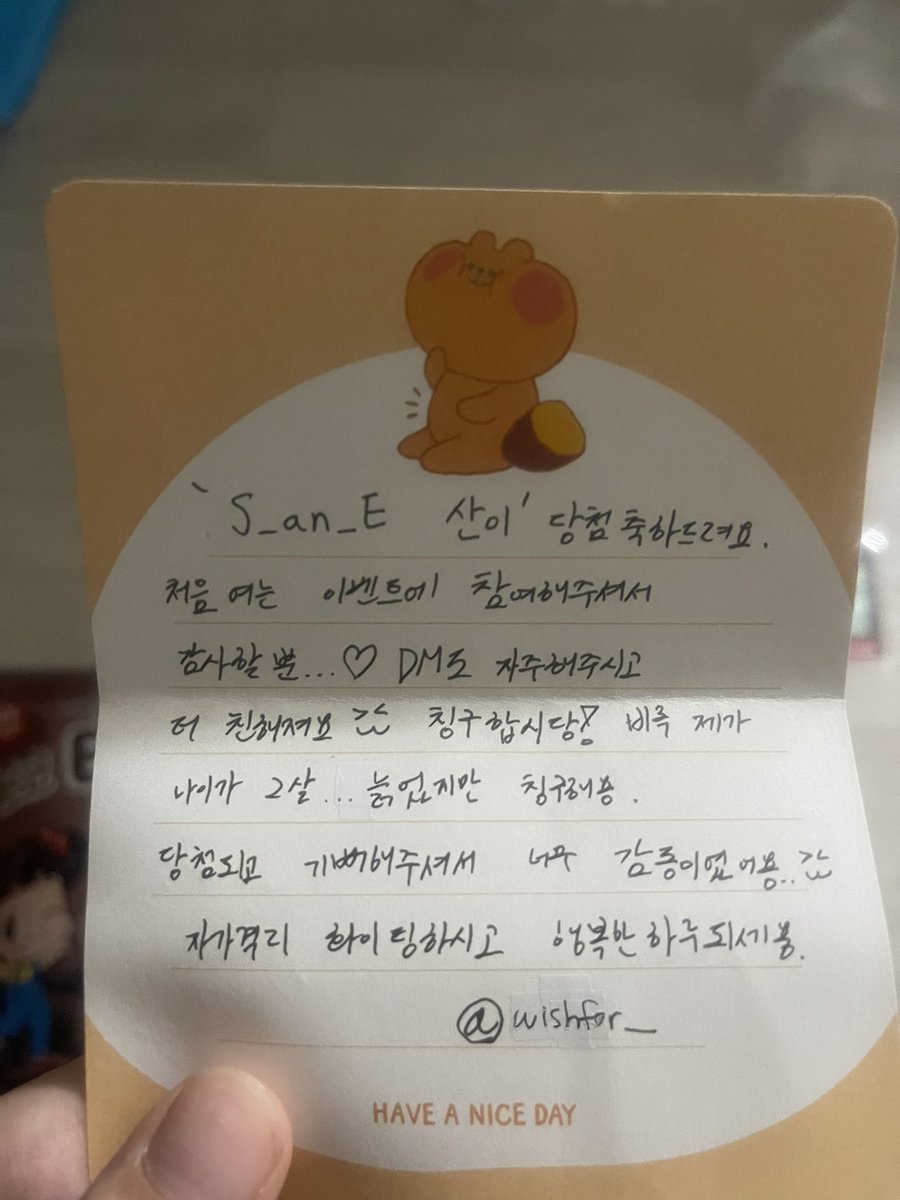 'S_an_E 산이' 당첨 축하드려요.
처음 여는 이벤트에 참여해주셔서
감사할 뿐...♡ DM도 자주해주시고
더 친해져요 ㅎㅎ 칭구합시당! 비록 제가
나이가 2살... 늙었지만 칭구해용.
당첨되고 기뻐해주셔서 너무 감동이었어용..ㅎㅎ
자가격리 화이팅하시고 행복한하루되세용.
@wishfor_
HAVE A NICE DAY